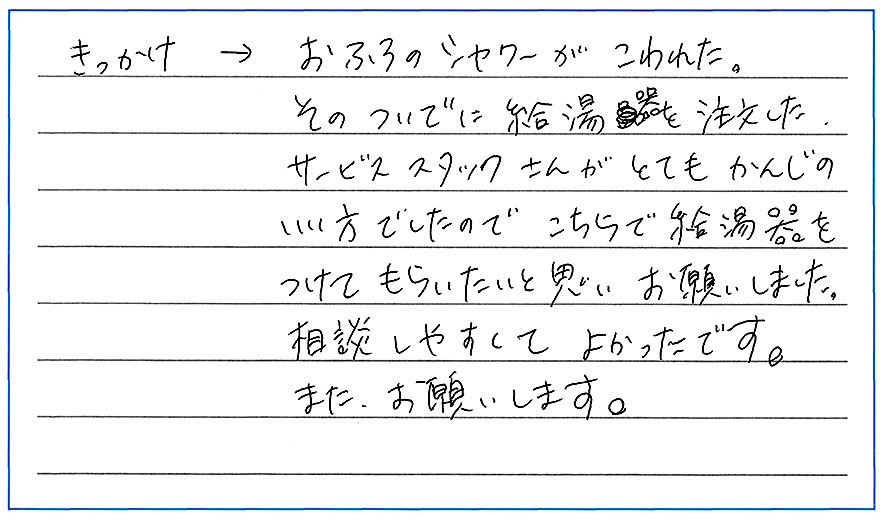 きっかけ → おふろのシャワーが こわれた。
そのついでに 給湯器を 注文した.
サービススタックさんが とても かんじの
いい方でしたので こちらで 給湯器を
つけて もらいたいと思い お願いしました。
相談しやすくて よかったです。
また、お願いします。